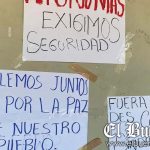 EXIGIMOS
SEGURIDAD
LEMOS JUNTOS
POR LA PAZ
E NUESTRO
PUEBLO.
FUERA
DES
El Bu